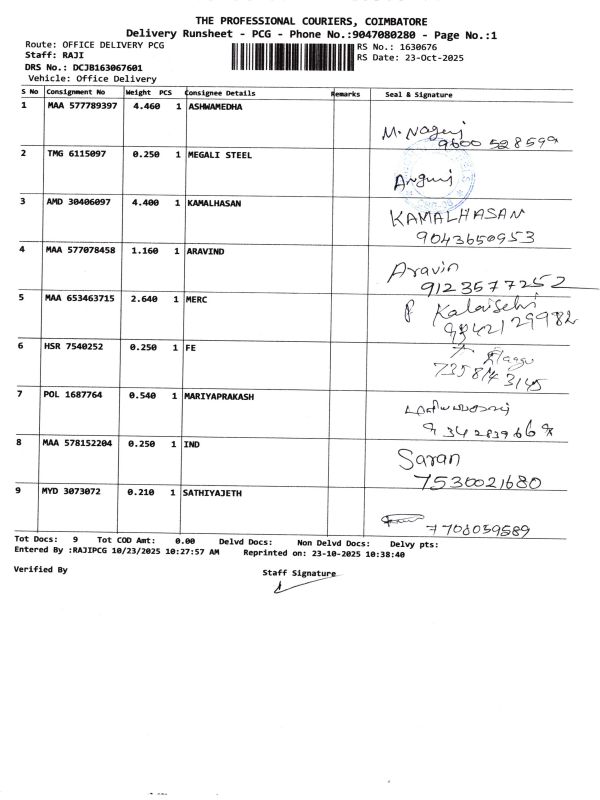 THE PROFESSIONAL COURIERS, COIMBATORE
Delivery Runsheet - PCG - Phone No.:9047080280 - Page No.:1
Route: OFFICE DELIVERY PCG
RS No.: 1630676
Staff: RAJI
RS Date: 23-Oct-2025
DRS No.: DCJB163067601
Vehicle: Office Delivery
S No Consignment No Weight PCS Consignee Details Remarks Seal & Signature
1 MAA 577789397 4.460 1 ASHWAMEDHA
M. Nagenj
9600 528599
2 TMG 6115097 0.250 1 MEGALI STEEL
3 AMD 30406097 4.400 1 KAMALHASAN
KAMALHASAN
9043650953
4 MAA 577078458 1.160 1 ARAVIND
Aravin
9123577252
5 MAA 653463715 2.640 1 MERC
P Kalaiselvi
9842129982
6 HSR 7540252 0.250 1 FE
7358143145
7 POL 1687764 0.540 1 MARIYAPRAKASH
9342839669
8 MAA 578152204 0.250 1 IND
Saran
7530021680
9 MYD 3073072 0.210 1 SATHIYAJETH
7708059589
Tot Docs: 9 Tot COD Amt: 0.00 Delvd Docs: Non Delvd Docs: Delvy pts:
Entered By :RAJIPCG 10/23/2025 10:27:57 AM Reprinted on: 23-10-2025 10:38:40
Verified By
Staff Signature